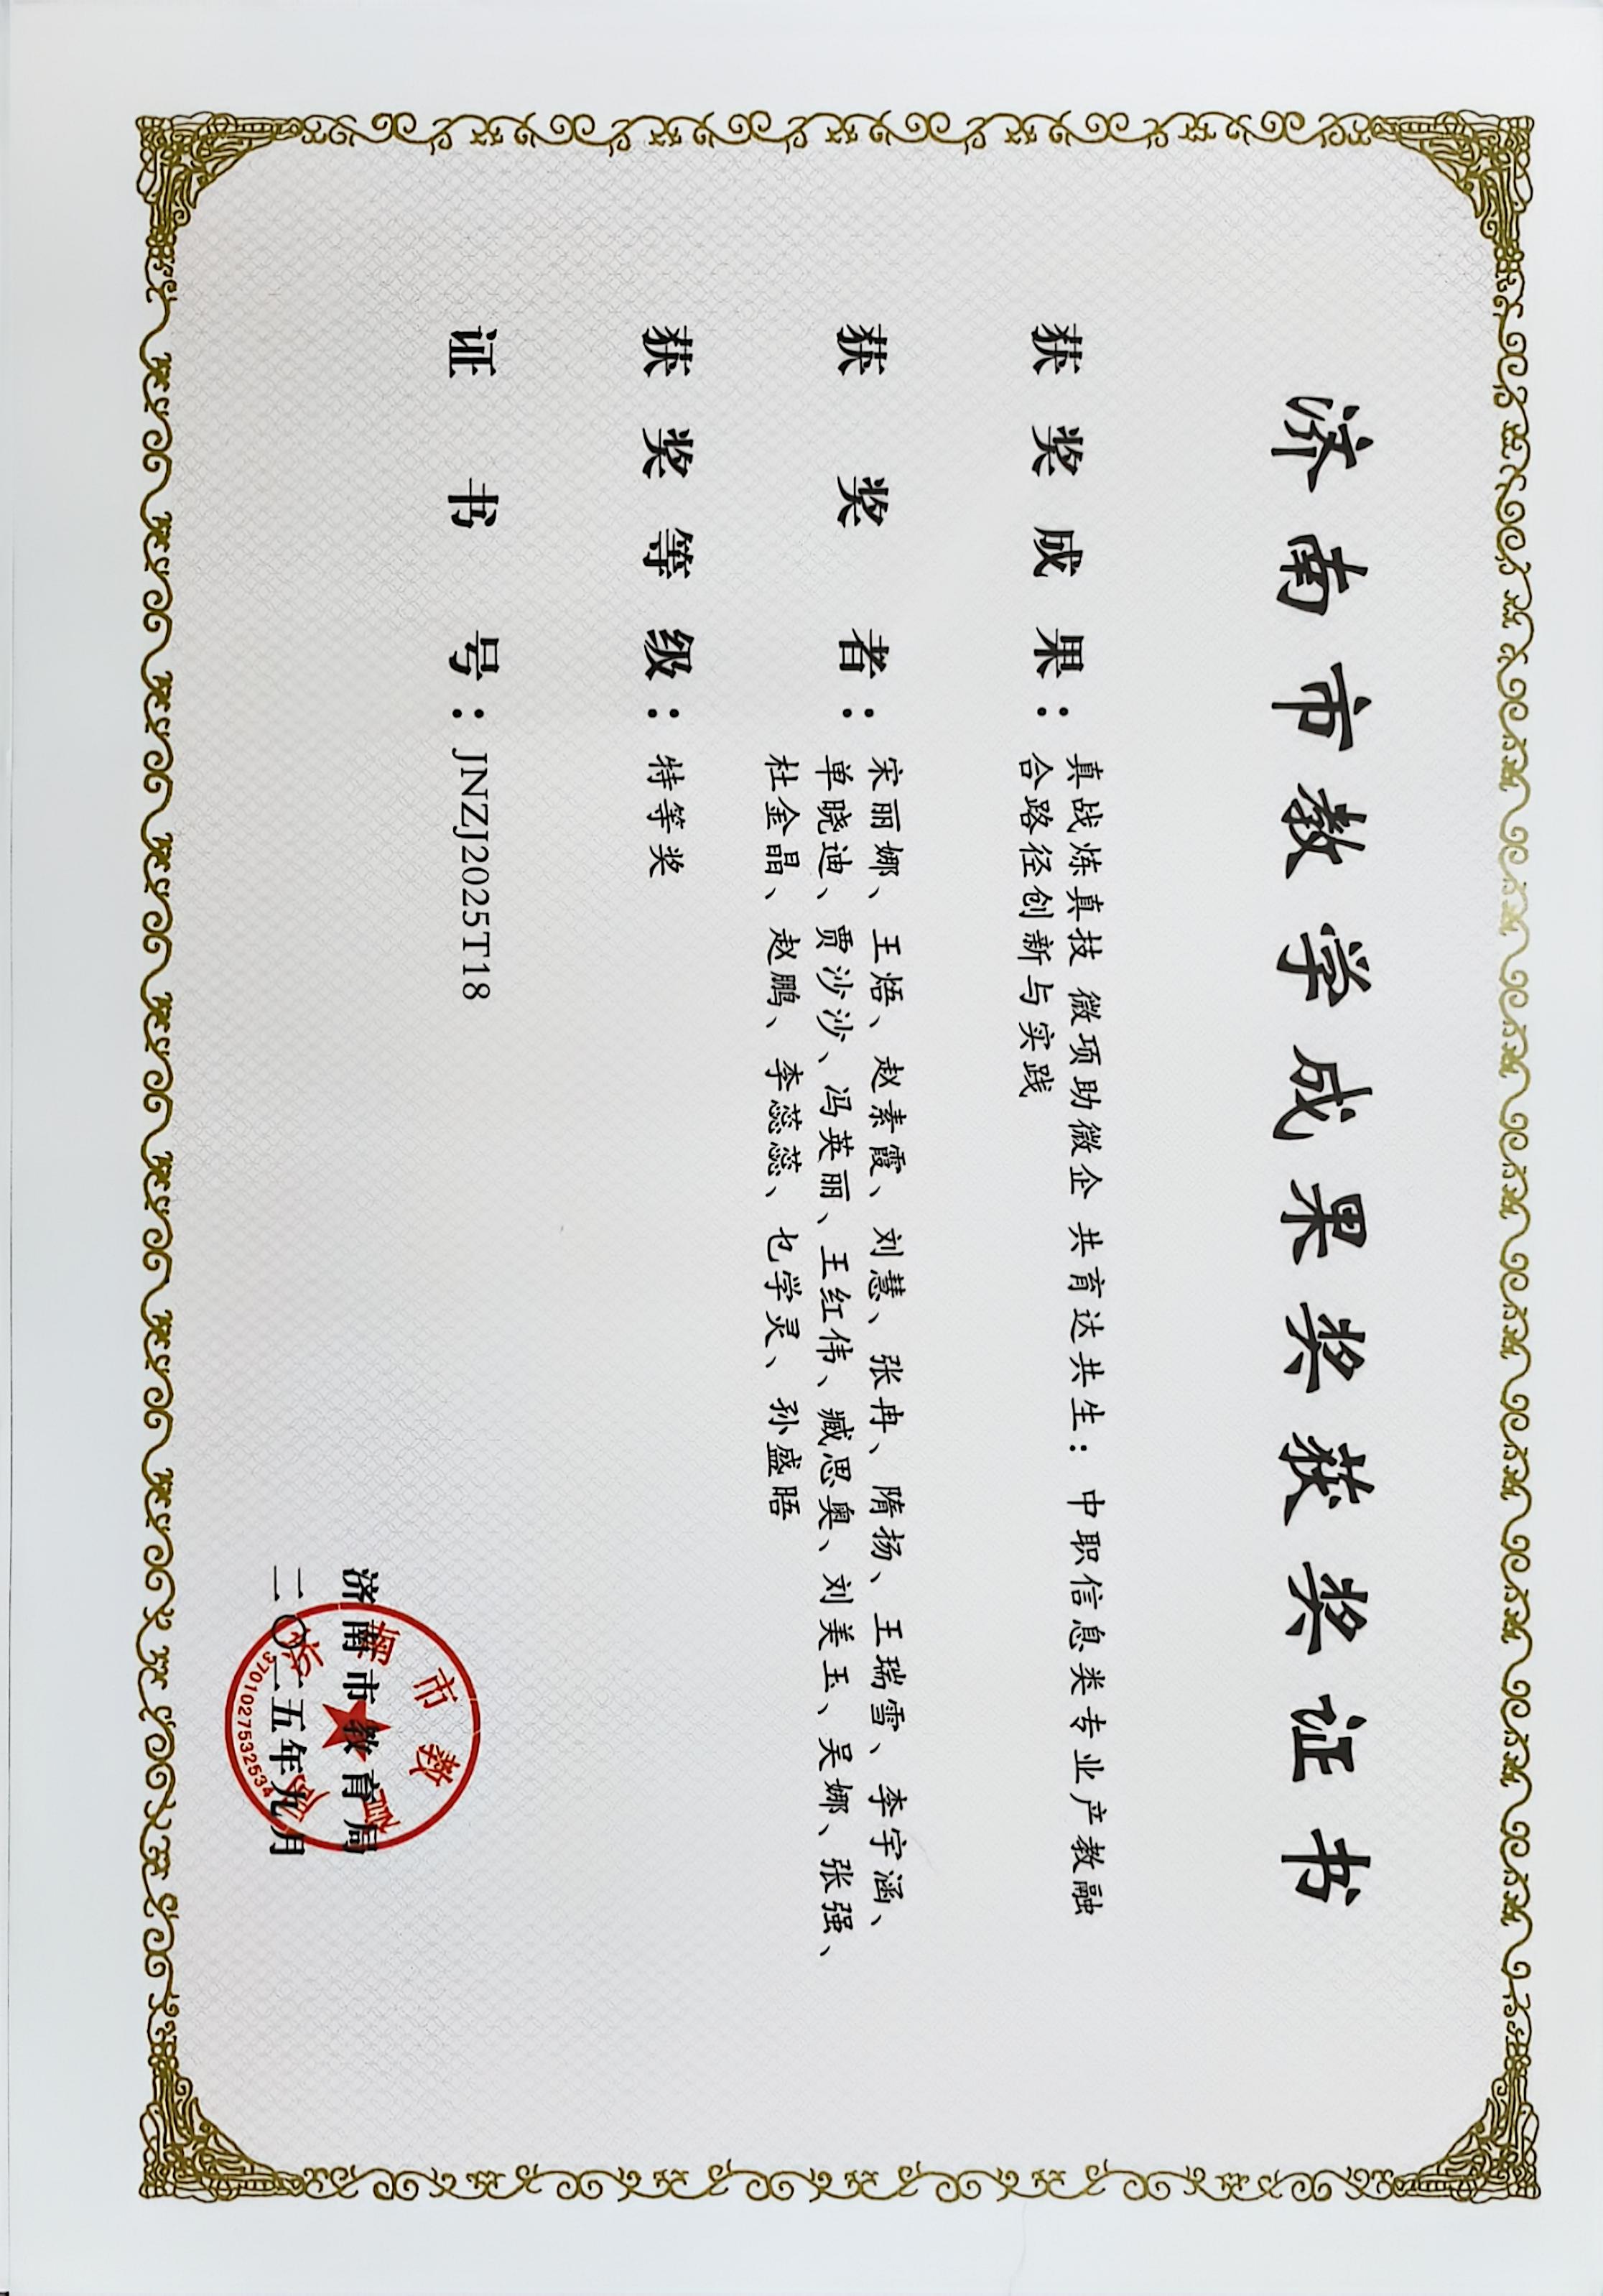 济南市教学成果奖获奖证书
获奖成果：真战炼真技 微项助微企 共育达共生：中职信息类专业产教融
合路径创新与实践
获奖者：宋丽娜、王焐、赵素霞、刘慧、张冉、隋扬、王瑞雪、李宇涵、
单晓迪、贾沙沙、冯英丽、王红伟、臧思奥、刘美玉、吴娜、张强、
杜金晶、赵鹏、李蕊蕊、乜学灵、孙盛晤
获奖等级：特等奖
证书号：JNZJ2025T18
济南市教育局
二〇二五年九月
济南市教育局
3701027532534